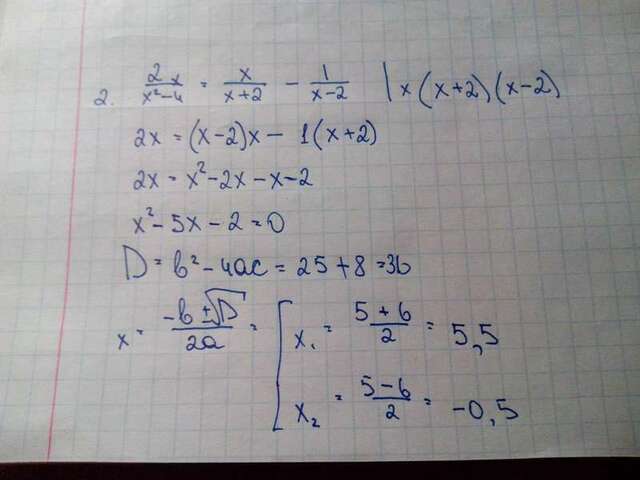 2. 2x/(x²-4) = x/(x+2) - 1/(x-2) | x(x+2)(x-2)
2x = (x-2)x - 1(x+2)
2x = x²-2x-x-2
x²-5x-2=0
D = b²-4ac = 25+8=36
x = (-b±√D)/2a = [ x₁ = (5+6)/2 = 5,5
x₂ = (5-6)/2 = -0,5